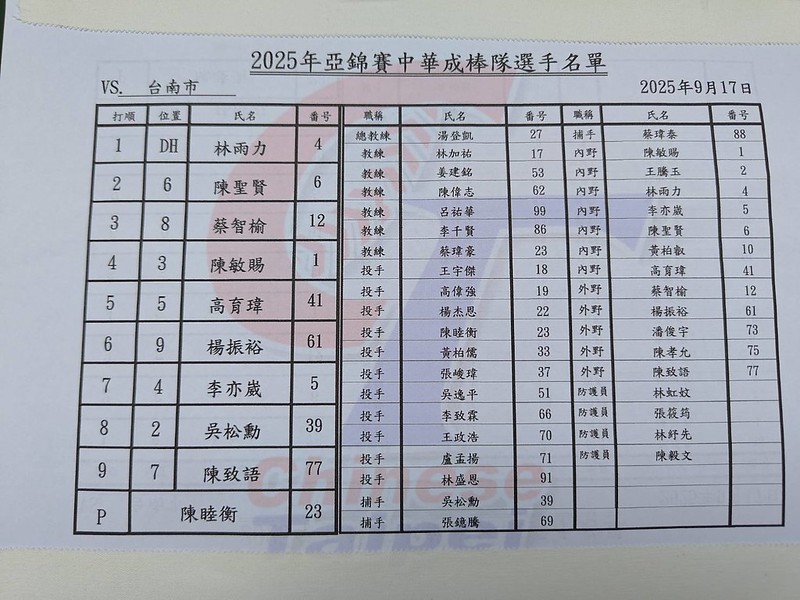 2025年亞錦賽中華成棒隊選手名單
VS. 台南市 2025年9月17日
打順 位置 氏名 番号 職稱 氏名 番号 職稱 氏名 番号
1 DH 林雨力 4
2 6 陳聖賢 6
3 8 蔡智榆 12
4 3 陳敏賜 1
5 5 高育瑋 41
6 9 楊振裕 61
7 4 李亦崴 5
8 2 吳松勳 39
9 7 陳致語 77
P 陳睦衡 23
總教練 湯登凱 27
教練 林加祐 17
教練 姜建銘 53
教練 陳偉志 62
教練 呂祐華 99
教練 李千賢 86
教練 蔡瑋豪 23
投手 王宇傑 18
投手 高偉強 19
投手 楊杰恩 22
投手 陳睦衡 23
投手 黃柏儒 33
投手 張峻瑋 37
投手 吳逸平 51
投手 李致霖 66
投手 王政浩 70
投手 盧孟揚 71
投手 林盛恩 91
捕手 吳松勳 39
捕手 張鐿騰 69
捕手 蔡瑋泰 88
內野 陳敏賜 1
內野 王騰玉 2
內野 林雨力 4
內野 李亦崴 5
內野 陳聖賢 6
內野 黃柏叡 10
內野 高育瑋 41
外野 蔡智榆 12
外野 楊振裕 61
外野 潘俊宇 73
外野 陳孝允 75
外野 陳致語 77
防護員 林虹妏
防護員 張筱筠
防護員 林紓先
防護員 陳毅文
Chinese
Taipei